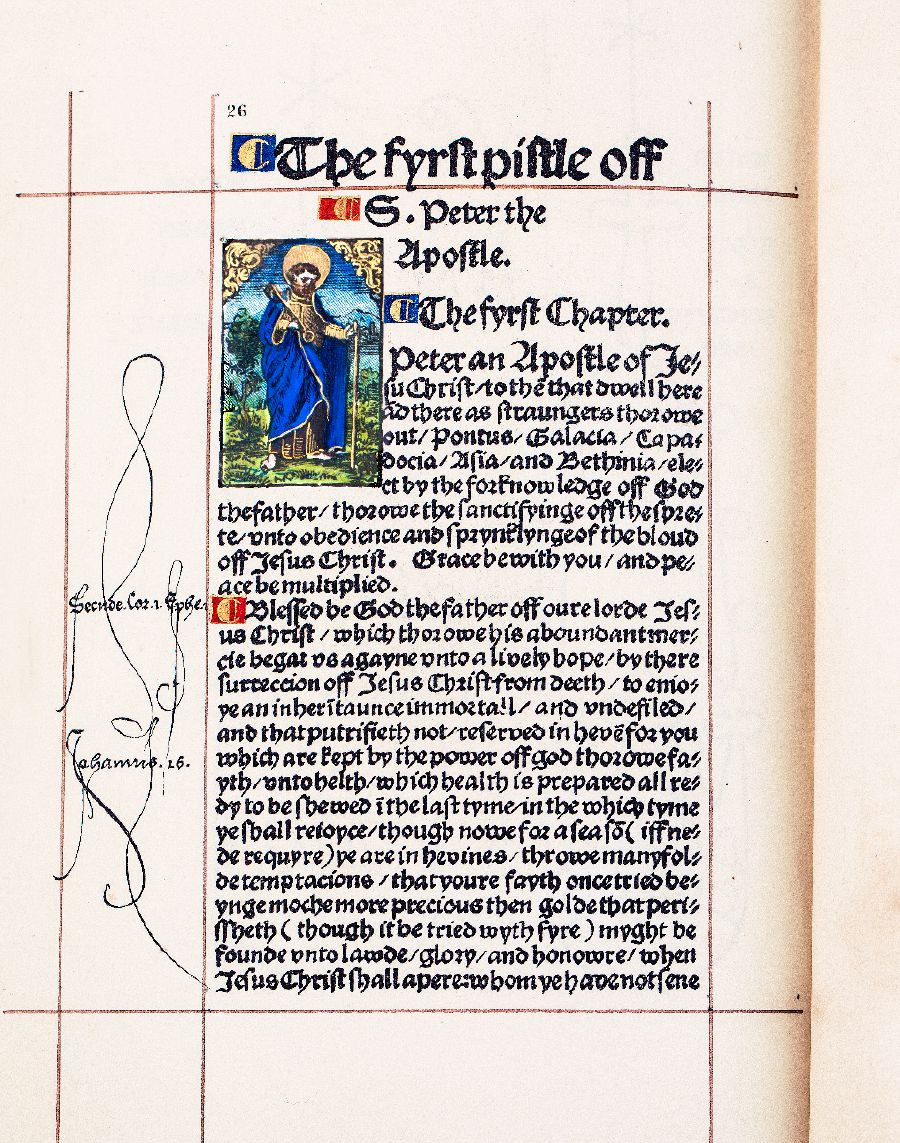 26
The fyrst pistle off
S. Peter the
Apostle.
The fyrst Chapter.
Peter an Apostle of Je⸗
su Christ/to thē that dwell here
ād there as straungers thorowe
out/ Pontus/ Galacia / Capa⸗
docia/ Asia/and Bethinia/ele⸗
ct by the forknowledge off God
the father/ thorowe the sanctifyinge off the spre⸗
te/ vnto obedience and sprynklynge of the bloud
off Jesus Christ. Grace be with you/ and pe⸗
ace be multiplied.
Secnde. Cor. 1. Ephe. 1
Blessed be God the father off oure lorde Jes⸗
us Christ / which thorowe his aboundant mer⸗
cie begat vs agayne vnto a lively hope/by there
surreccion off Jesus Christ from deeth / to enio⸗
ye an inherītaunce immortall/ and vndefiled/
and that putrifieth not/reserved in hevē for you
which are kept by the power off god thorowe fa⸗
Johannis. 16.
yth/vnto helth/which health is prepared all re⸗
dy to be shewed ī the last tyme/in the which tyme
ye shall reioyce/though nowe for a seasō( iff ne⸗
de requyre)ye are in hevines/ throwe manyfol⸗
de temptacions / that youre fayth once tried be⸗
ynge moche more precious then golde that peri⸗
ssheth ( though it be tried wyth fyre ) myght be
founde vnto lawde/glory/and honowre/ when
Jesus Christ shall apere:whom ye have not sene